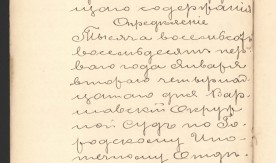 щаго содержанія
Опредѣленіе
Тысяча восемьсотъ
восемьдесятъ пер-
ваго года Января
втораго четырнад-
цатаго дня Вар-
шавскій Окруж-
ной Судъ по Го-
родскому Ипо-
течному Отдѣ-